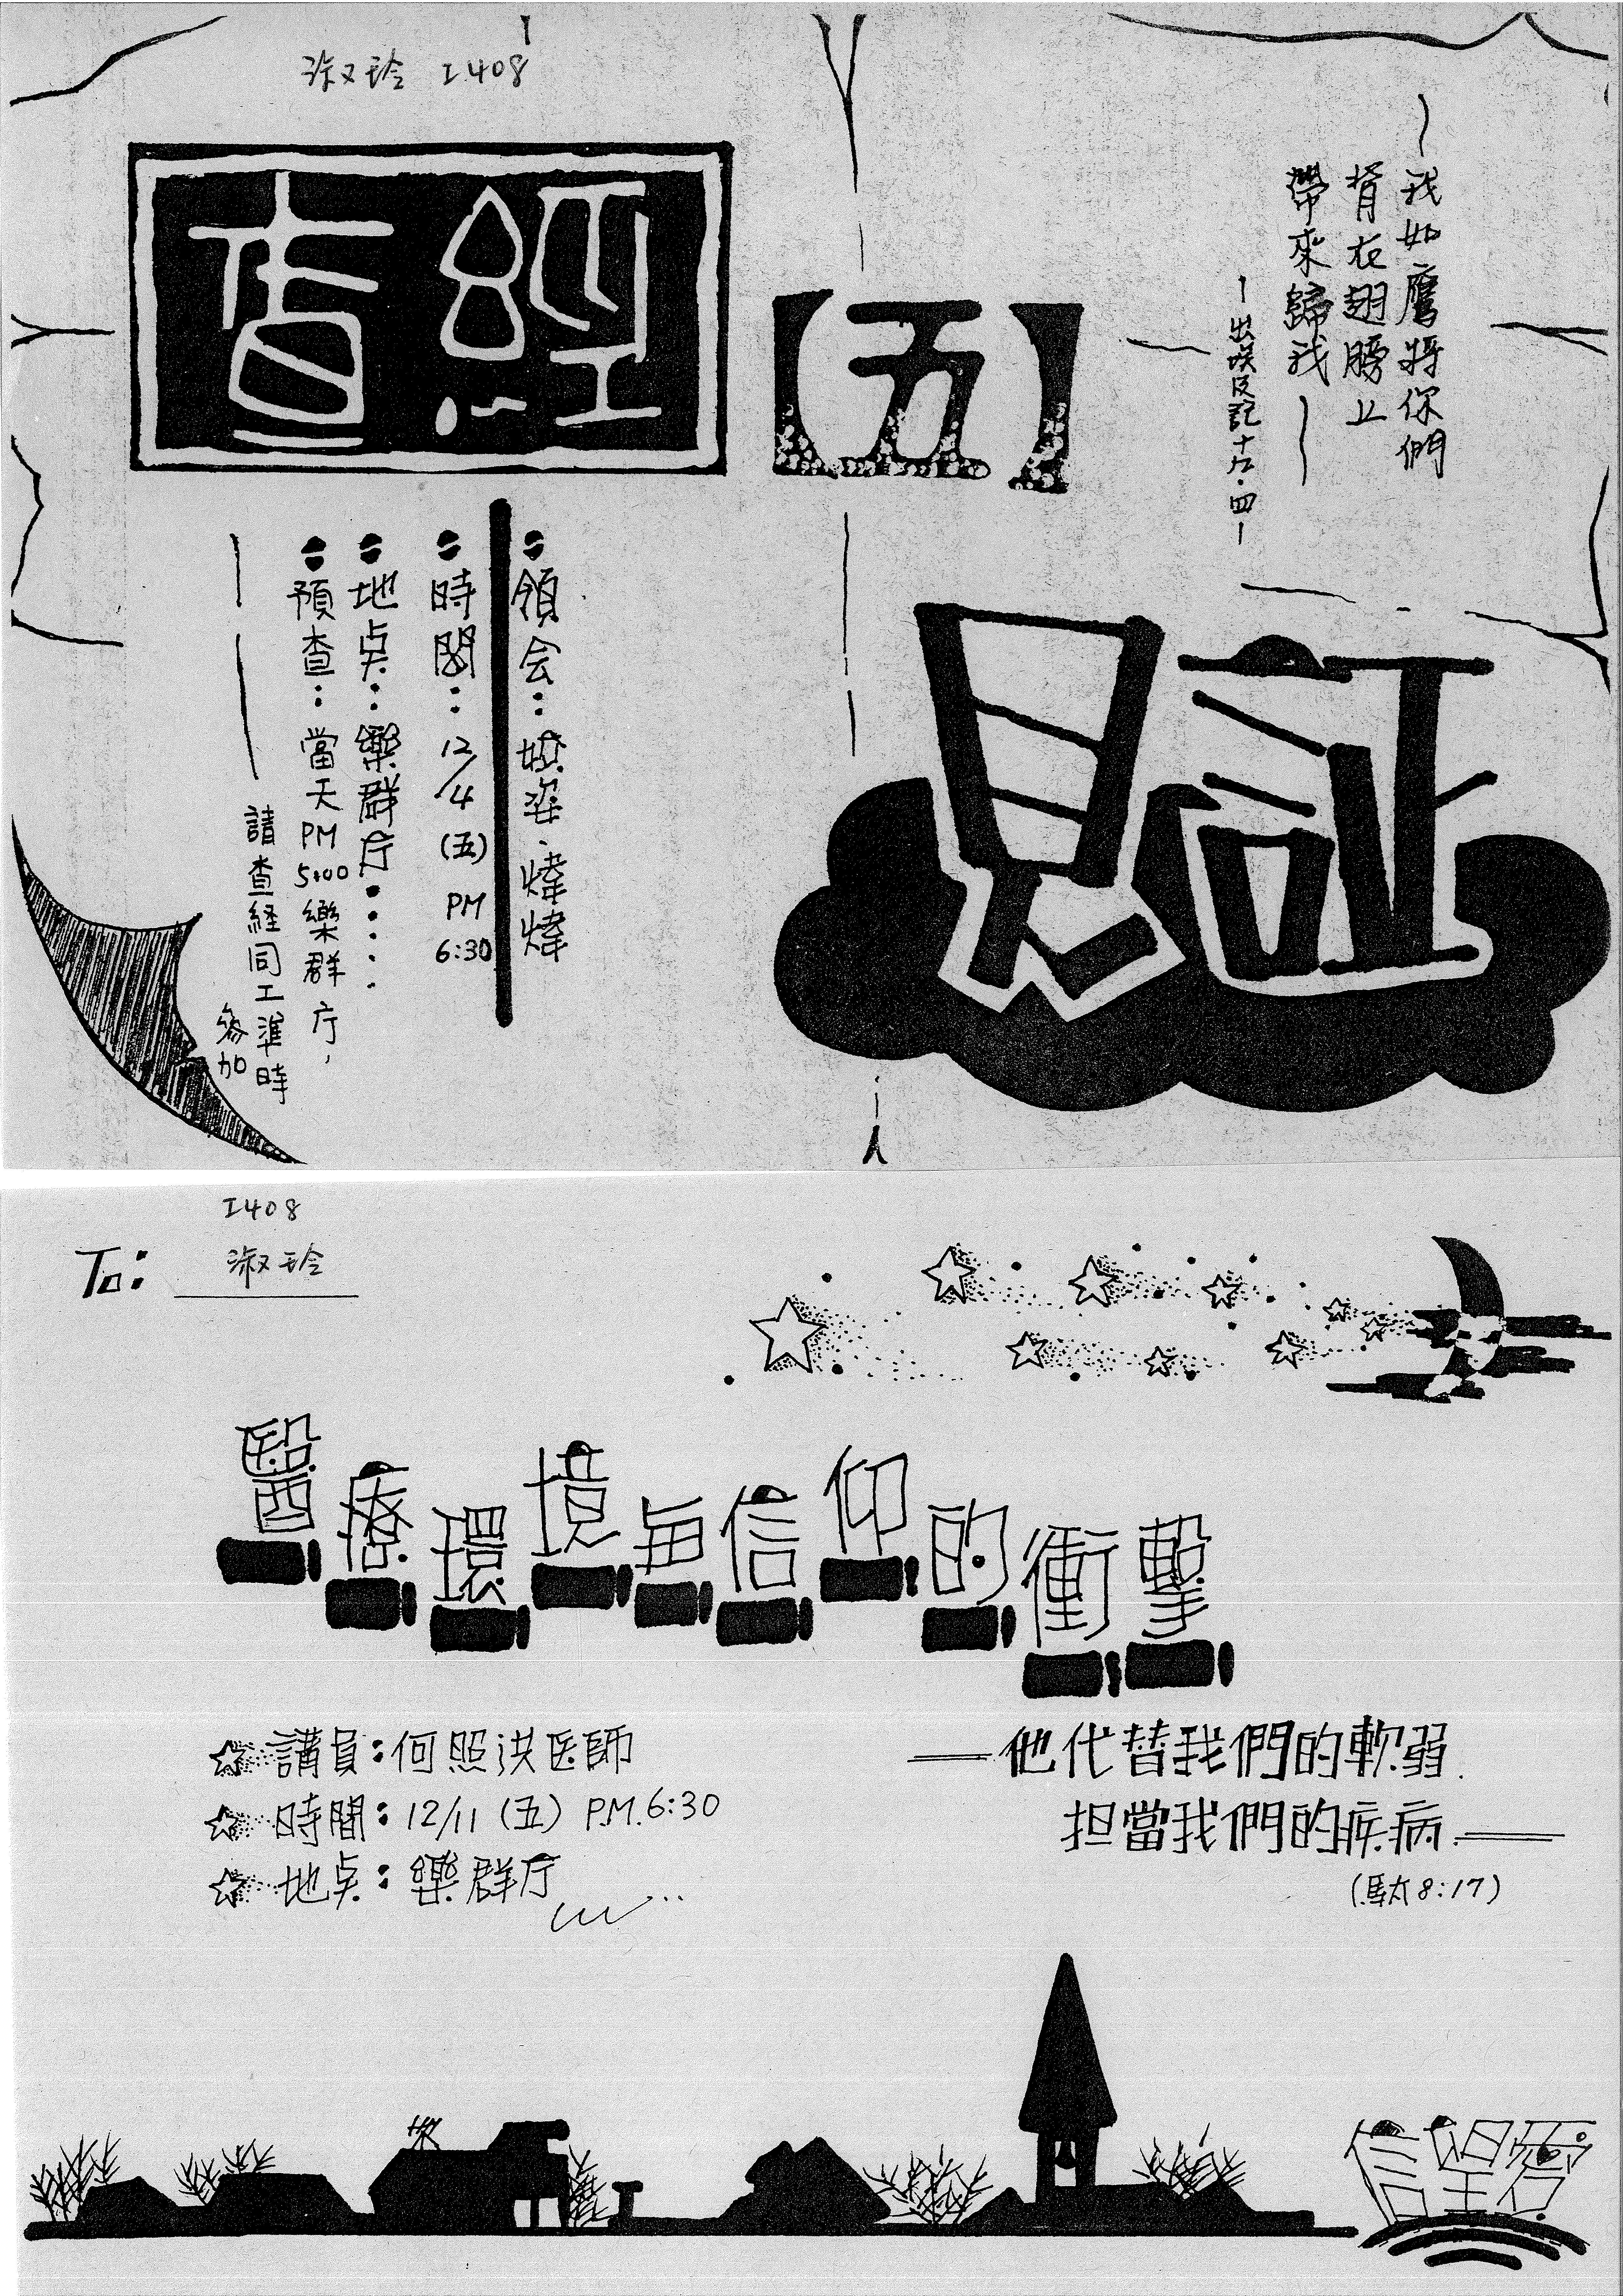 淑玲 I408
查經
【五】
見証
～我如鷹將你們
背在翅膀上
帶來歸我～
－出埃及記十九・四－
領会：姿、煒煒
時間：12/4 (五) PM 6:30
地点：樂群厅．．．．
預查：當天PM 5:00樂群厅，
請查経同工準時
參加
I408
To: 淑玲
醫療環境与信仰的衝擊
講員：何照洪医師
時間：12/11 (五) P.M. 6:30
地点：樂群厅
——他代替我們的軟弱.
担當我們的疾病.——
(馬太8:17)
信望愛